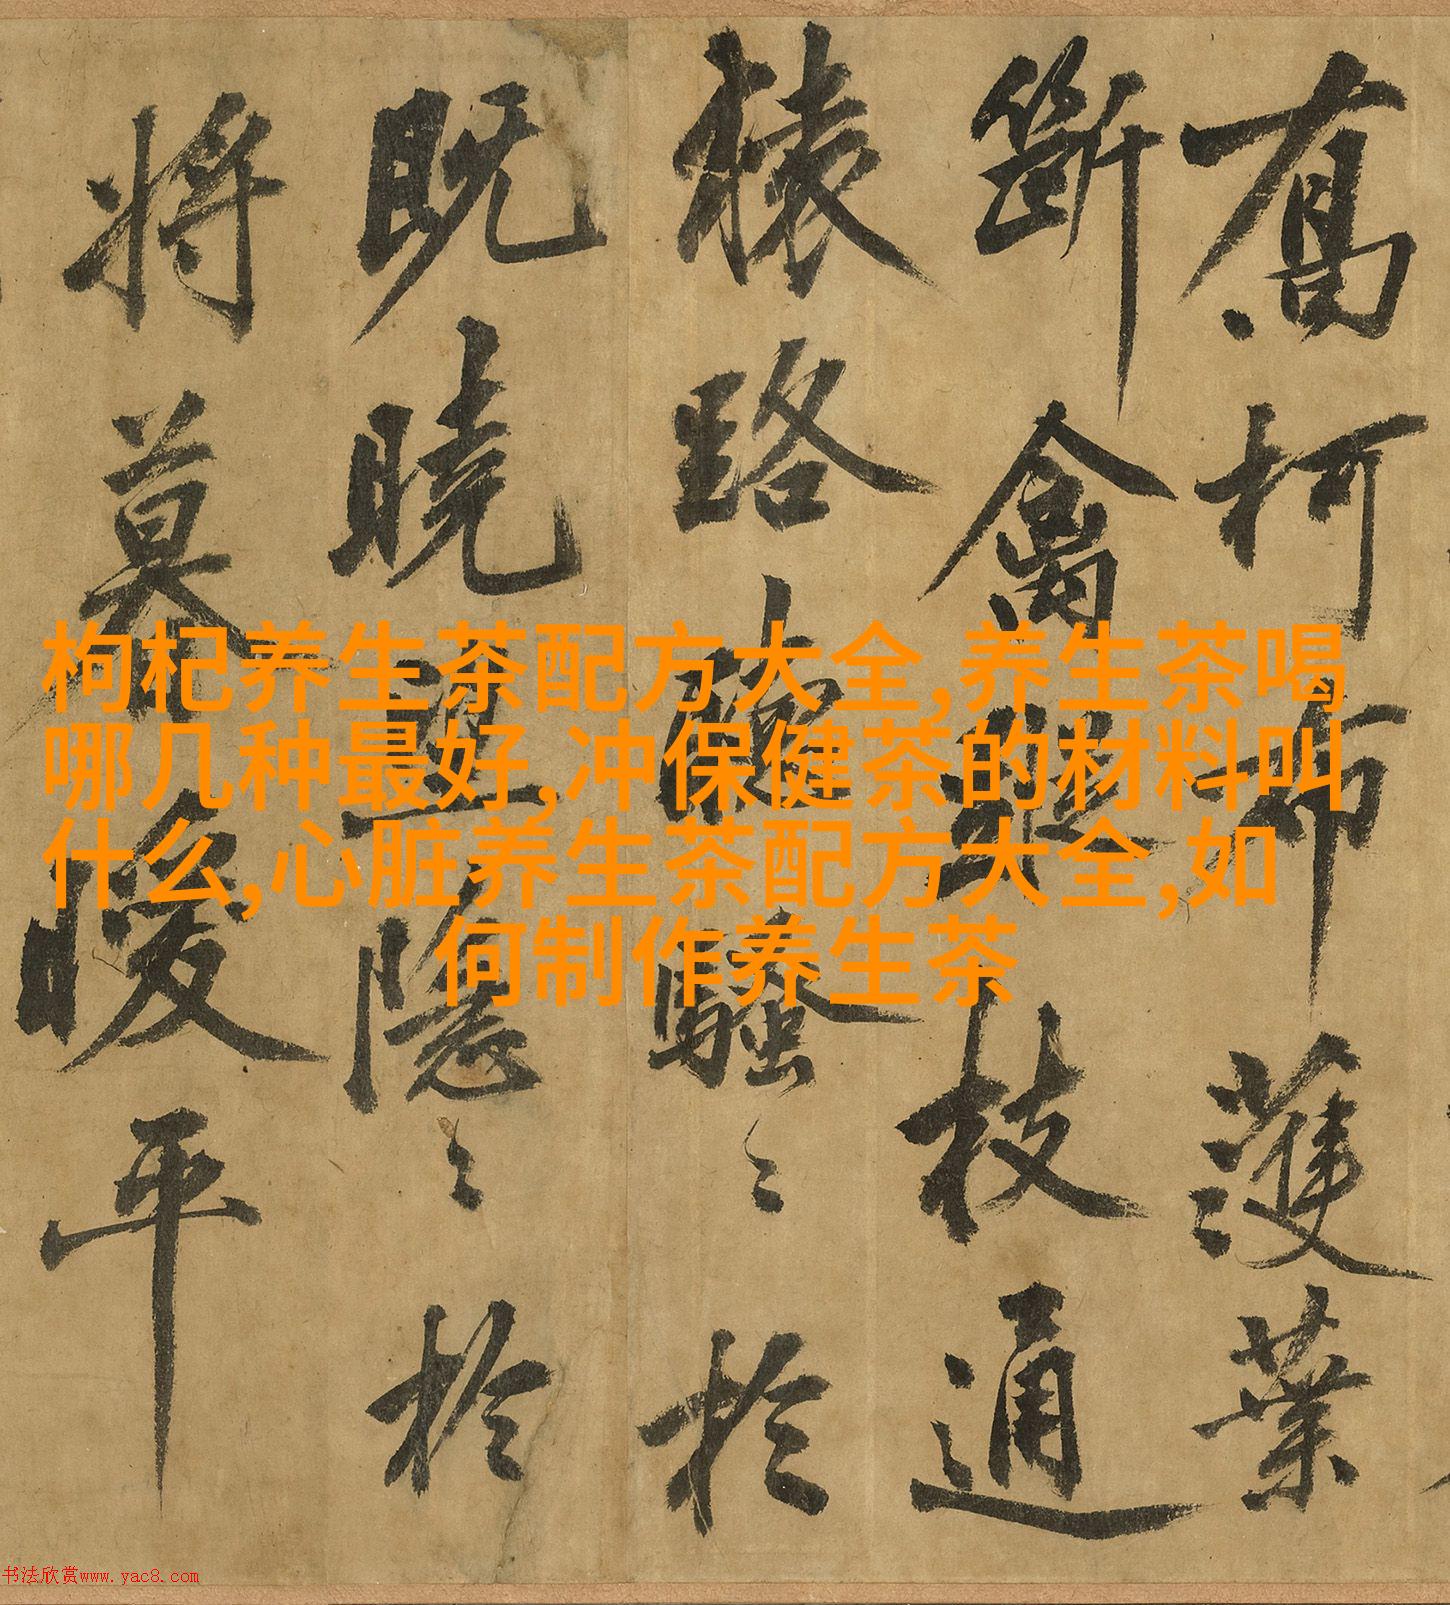 喬柯布濩葉
斷禽枝通
猿路聽騷〻於
既曉望隱〻於
將暮曖平
枸杞养生茶配方大全,养生茶喝
哪几种最好,冲保健茶的材料叫
什么,心脏养生茶配方大全,如
何制作养生茶
书法欣赏www.yac8.com